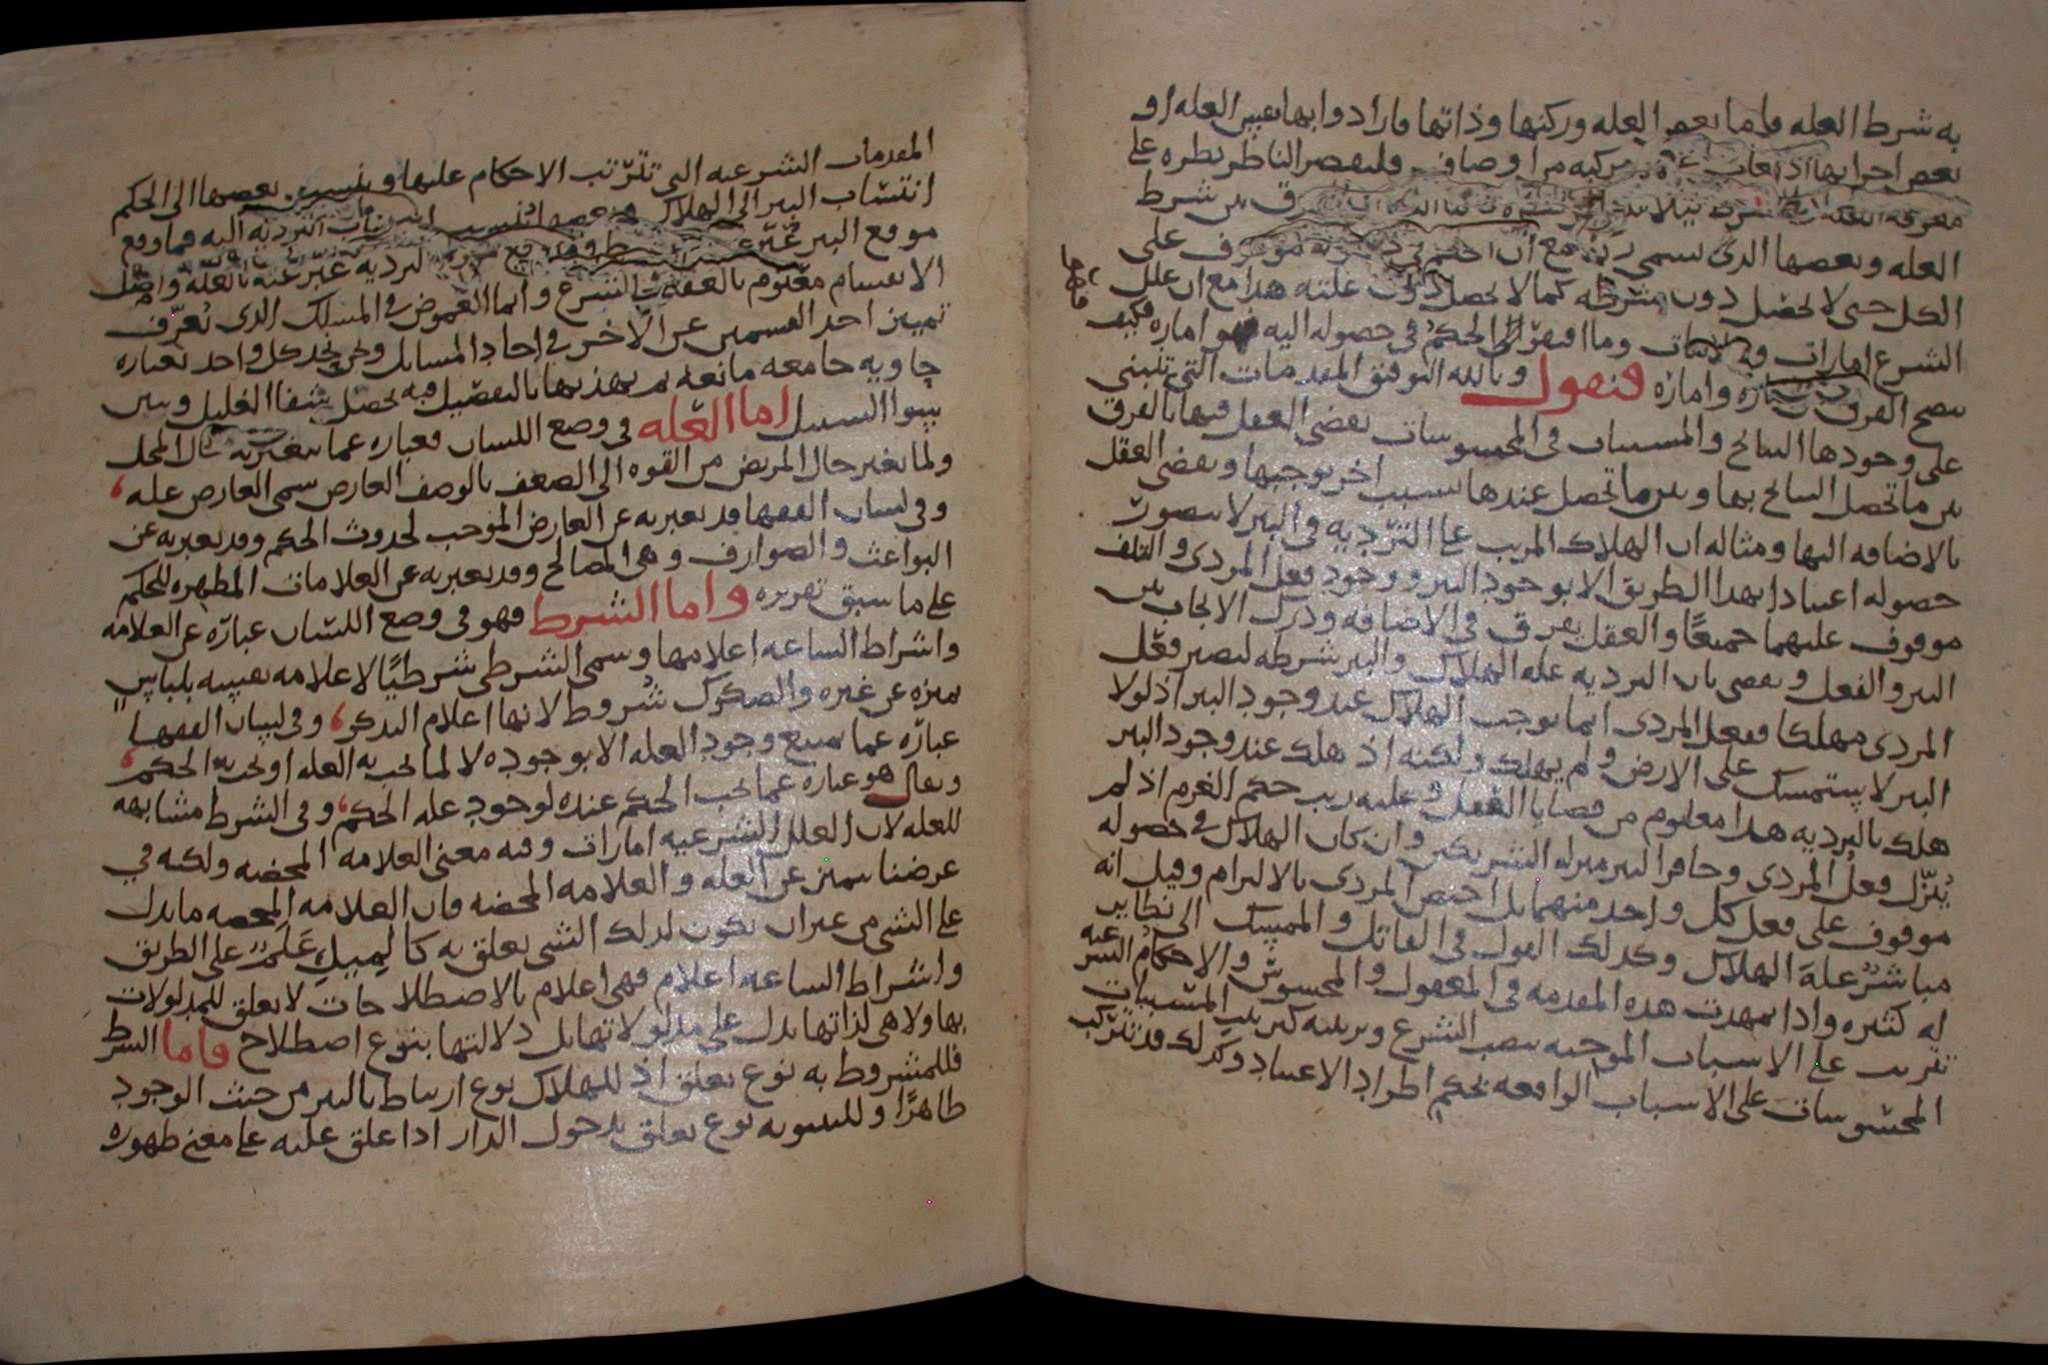 به شرط العله واما بعض العله وركنها وذاتها فارادوا بها نفس العله او
بعض اجزايها اذا كانت مركبه من اوصاف فليقصر الناظر نظره على
معرفه العله شرط
العله وبعضها الذى يسمى مع ان الحكم موقوف على
الكل حتى لا يحصل دون شرطه كما لا يحصل دون علته هذا مع ان علل
الشرع امارات وما افتقر الحكم فى حصوله اليه فهو اماره فكيف
يتضح الفرق واماره فنقول وبالله التوفيق المقدمات التى تبتنى
على وجودها النتائج والمسببات فى المحسوسات يقضى العقل فيها بالفرق
بين ما تحصل النتائج بها وبين ما تحصل عندها بسبب اخر يوجبها ويقضى العقل
بالاضافه اليها ومثاله ان الهلاك المرتب على التردية فى البير لا يتصور
حصوله اعتيادا بهذا الطريق الا بوجود البير ووجود فعل المردى والتلف
موقوف عليهما جميعًا والعقل يفرق فى الاضافه ودرك الايجاب بين
البير والفعل ويقضى بان الترديه عله الهلاك والبير شرطه ليصير فعل
المردى مهلكا ففعل المردى انما يوجب الهلاك عند وجود البير اذ لولا
البير لاستمسك على الارض ولم يهلك ولكنه اذ هلك عند وجود البير
هلك بالترديه هذا معلوم من قضايا العقل وعليه رتب حكم الغرم اذ لم
يُنزّل فعل المردى وحافر البير منزله الشريكين وان كان الهلاك فى حصوله
موقوف على فعل كل واحد منهما بل اختص المردى بالالتزام وقيل انه
مباشر عله الهلاك وكذلك القول فى القاتل والممسك الى نظاير
له كثيره واذا تمهدت هذه المقدمه فى المعقول والمحسوس والاحكام الشرعيه
تترتب على الاسباب الموجبه بنصب الشرع وترتيبه كترتيب المسببات
المحسوسات على الاسباب الواقعه بحكم اطراد الاعتياد وكذلك قد تتركب
المقدمات الشرعيه التى تترّتب الاحكام عليها وينتسب بعضها الى الحكم
انتساب البير الى الهلاك وبعضها انتساب الترديه اليه فما وقع
موقع البير عُبّر الترديه عبّر عنه بالعله واصل
الانقسام معلوم بالعقل والشرع وانما الغموض فى المسلك الذى يُعرّف
تمييز احد القسمين عن الاخر فى احاد المسايل ونحن نحد كل واحد بعباره
حاويه جامعه مانعه ثم نهذبها بالتفصيل فيه تحصل شفا الغليل وبين
يبنوا السبيل اما العّله فى وضع اللسان فعباره عما يتغير به حال المحل
ولما تغير حال المريض من القوه الى الضعف بالوصف العارض سمى العارض عله
وفى لسان الفقها قد يعبر به عن العارض الموجب لحدوث الحكم وقد يعبر به عن
البواعث والصوارف وهى المصالح وقد يعبر به عن العلامات المظهره للحكم
على ما سبق تقريره واما الشرط فهو فى وضع اللسان عباره عن العلامه
واشراط الساعه اعلامها وسمى الشرطى شرطيًا لاعلامه نفسه بلباس
يميزه عن غيره والصكوك شروط لانها اعلام التذكر وفى لسان الفقها
عباره عما يمتنع وجود العله الا بوجوده لا لما يجب به العله او يجب به الحكم
ويقال هو عباره عما يجب الحكم عنده لوجود عله الحكم وفى الشرط مشابهه
للعله لان العلل الشرعيه امارات وفيه معنى العلامه المحضه ولكنه فى
عرضنا يتميز عن العله والعلامه المحضه فان العلامه المحضه ما يدل
على الشى من غير ان يكون لذلك الشى تعلق به كالميل عَلَمٌ على الطريق
واشراط الساعه اعلام فهى اعلام بالاصطلاحات لا تعلق للمدلولات
بها ولا هى لذاتها تدل على مدلولاتها بل دلالتها بنوع اصطلاح فاما الشرط
فللمشروط به نوع تعلق اذ للهلاك نوع ارتباط بالبير من حيث الوجود
ظاهرًا وللبينونه نوع تعلق بدخول الدار اذا علق عليه على معنى ظهوره